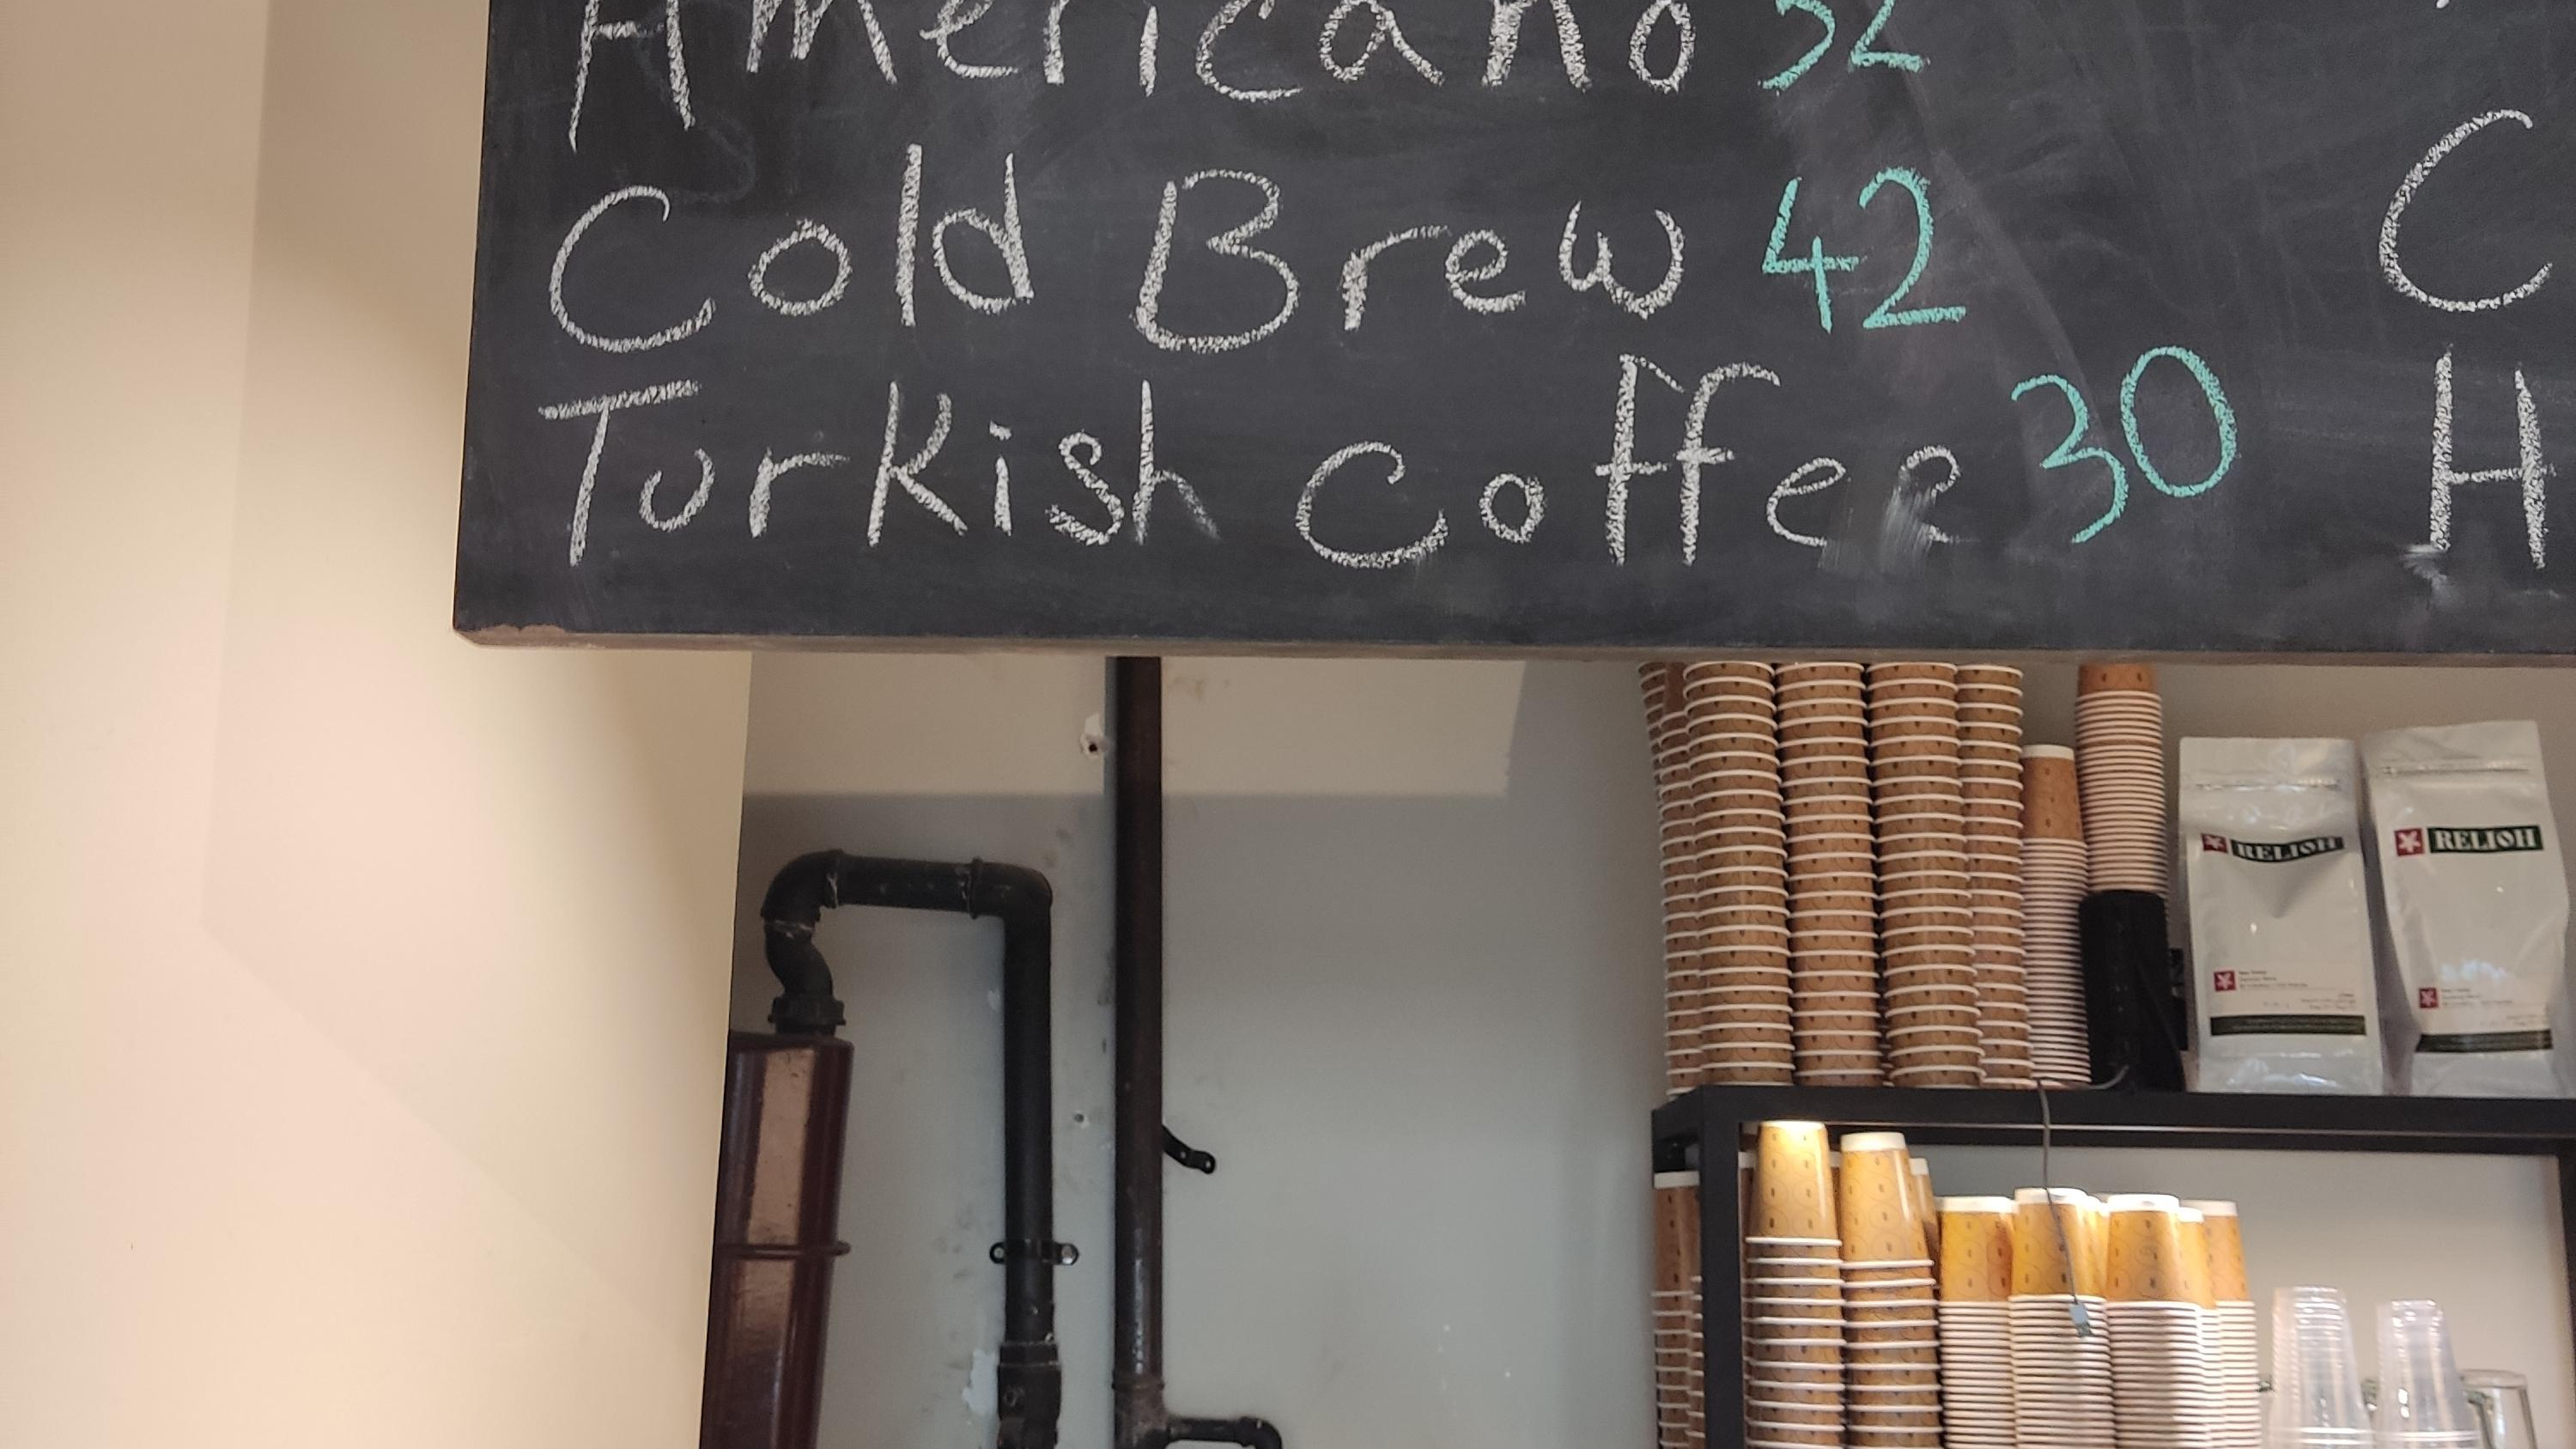 Americano 32
Cold Brew 42 C
Turkish Coffee 30 H
RELISH
RELISH